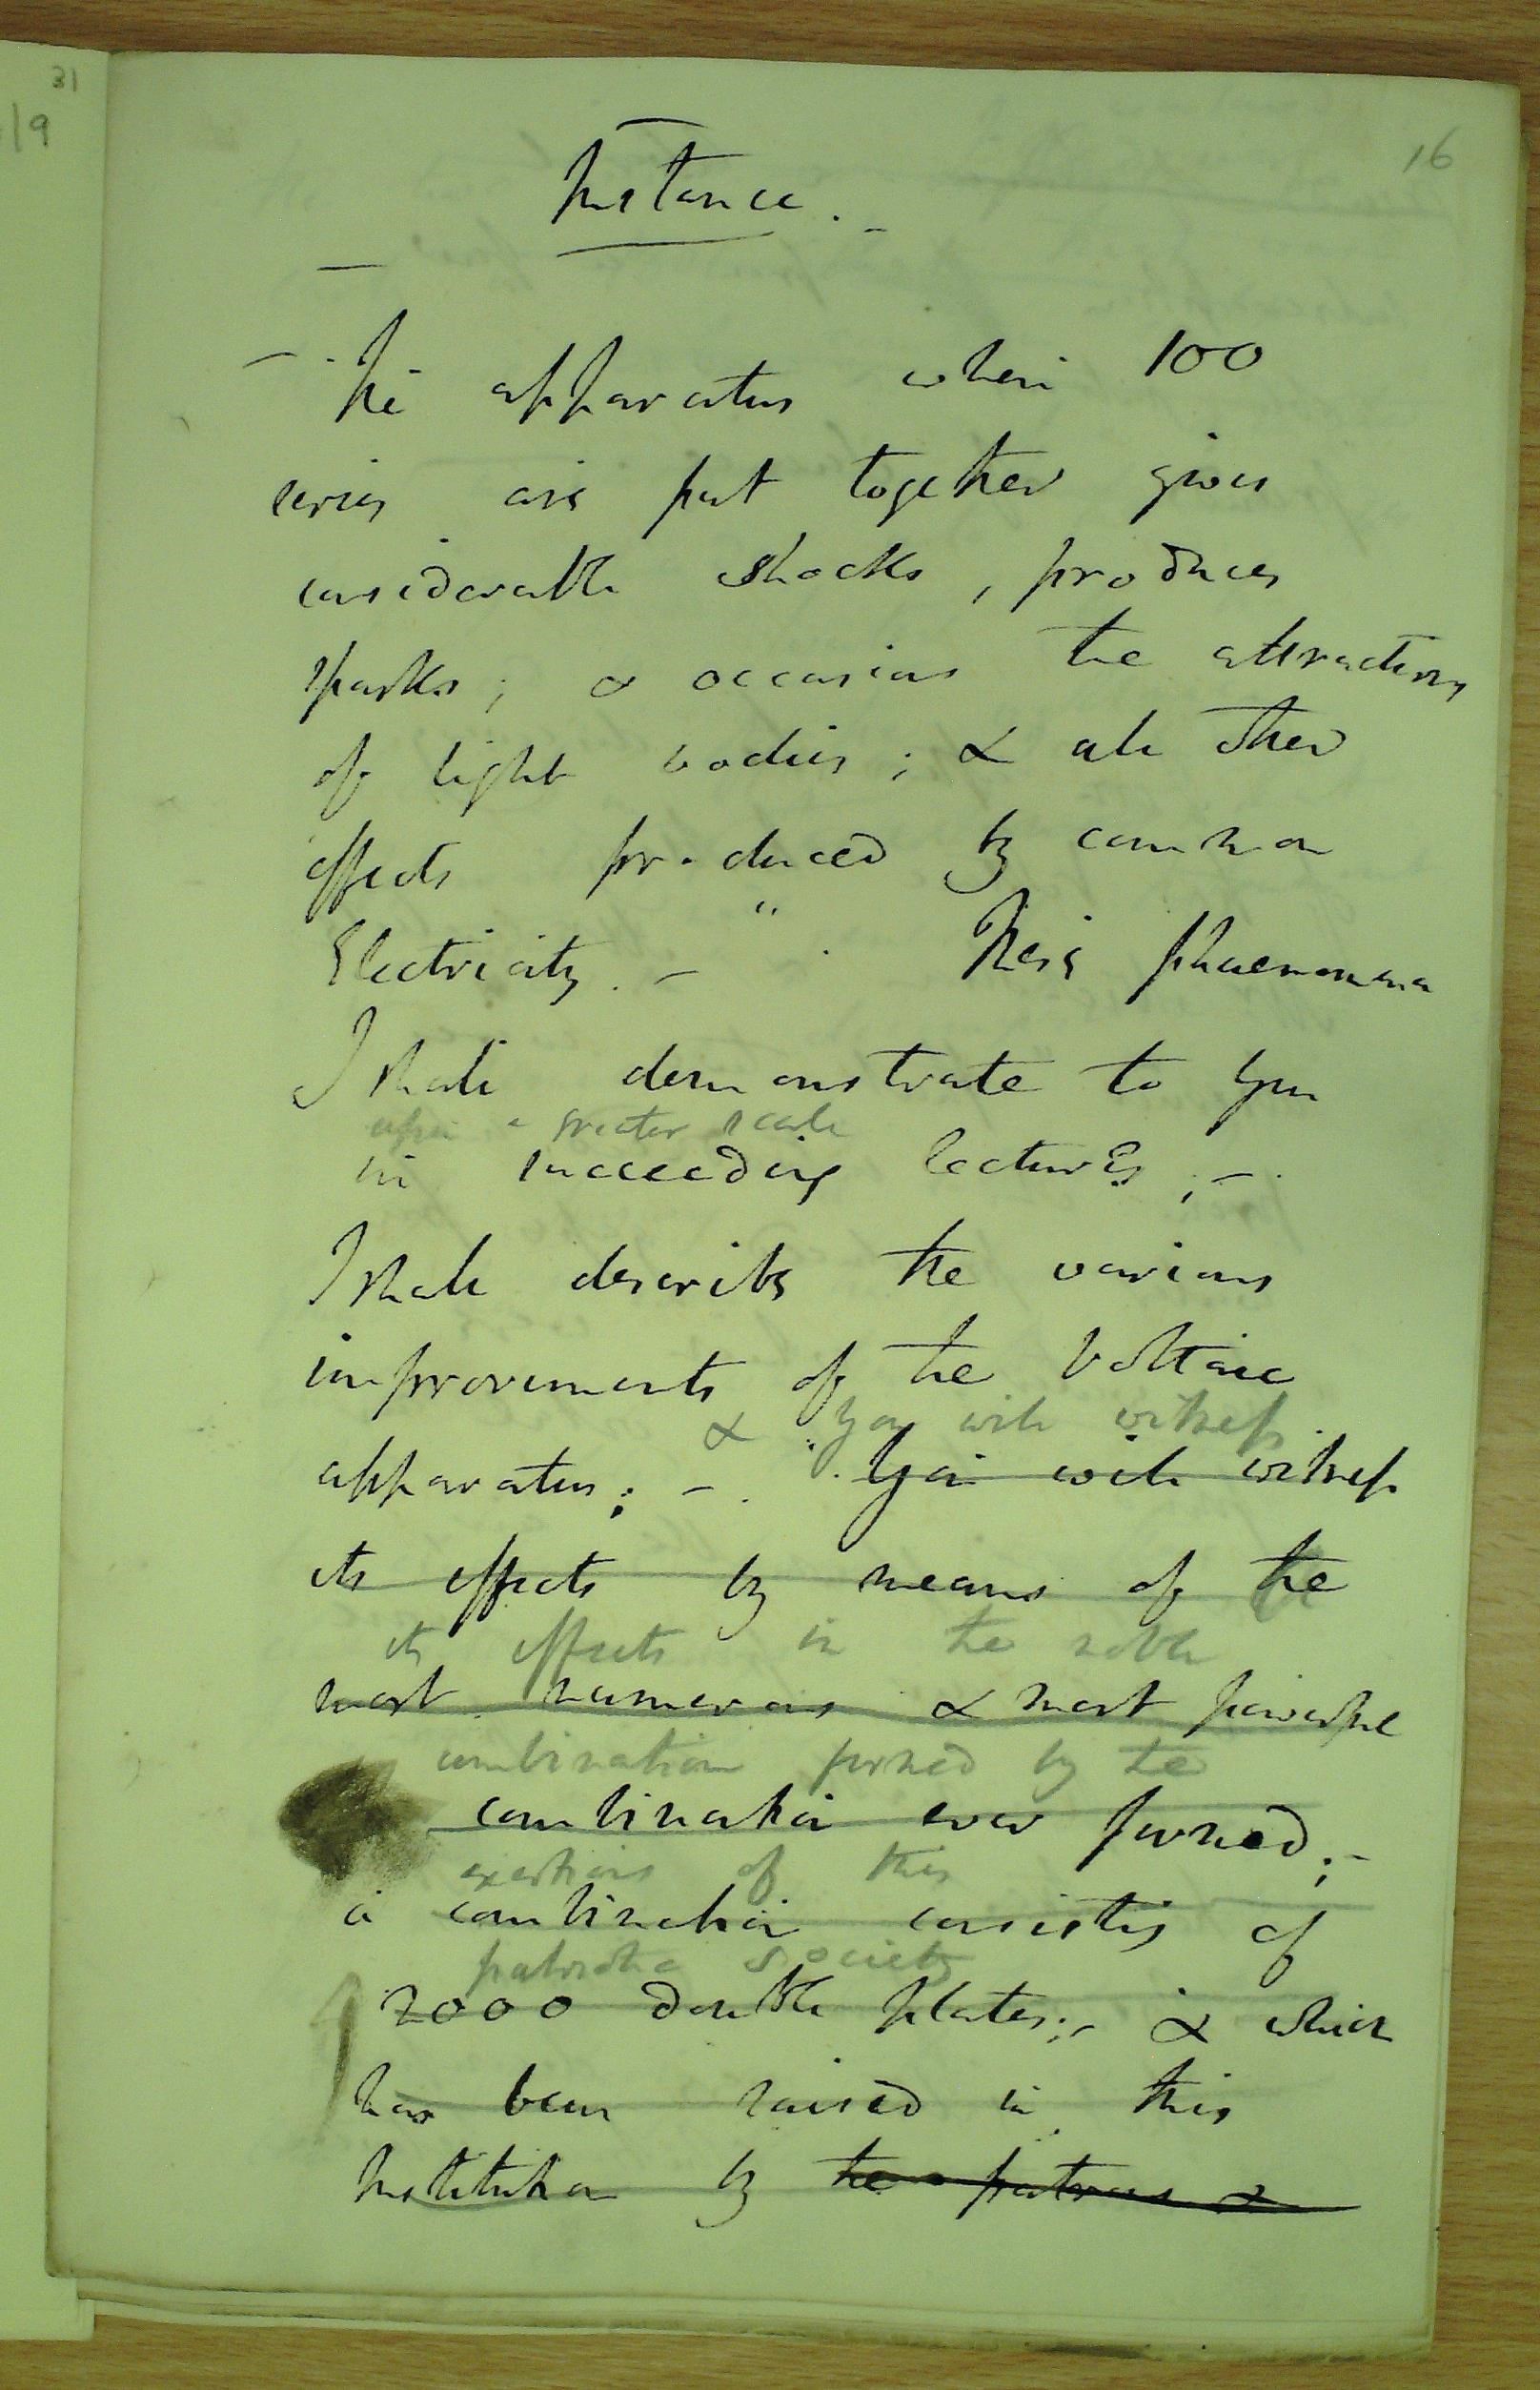 31
/9
16
Instance. -
- The apparatus when 100
series are put together gives
considerable shocks, produces
sparks; & occasions the attractions
of light bodies; & all other
effects produced by common
Electricity. - These phaenomena
I shall demonstrate to you
upon a greater scale
in succeeding lectures; -
I shall describe the various
improvements of the Voltaic
& you will witness
apparatus; - You will witness
its effects by means of the
its effects in the noble
most numerous & most powerful
combination formed by the
combination ever formed; -
exertions of this
a combination consistg of
patriotic society
2000 double plates; - & which
has been raised in this
Institution by the patrons &